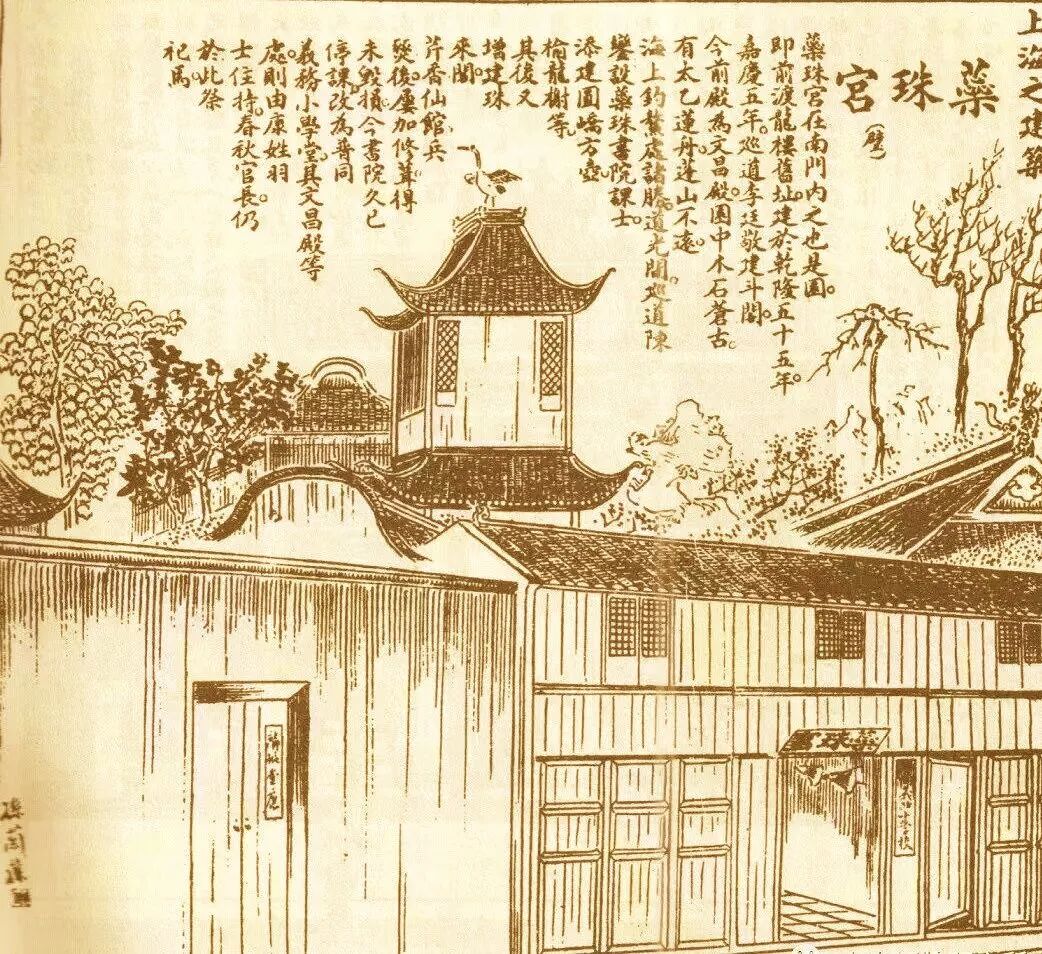 上海之建築
蘂珠宮
蘂珠宮在南門內之也是園。
即前渡龍樓舊址。建於乾隆五十五年。
嘉慶五年。巡道李廷敬建斗閣。
今前殿為文昌殿。園中木石蒼古。
有太乙蓮舟蓬山不遠。
海上釣鰲處諸勝。道光間。巡道陳
鑾設蘂珠書院課士。
添建圓嶠方壺。
榆龍榭等。
其後又
增建珠
來閣。
芹香仙館。兵
燹後。屢加修葺得
未毀損。今書院久已
停課。改為普同
義務小學堂。其文昌殿等
處。則由康姓羽
士住持。春秋官長。仍
於此祭
祀焉
蘂珠宮